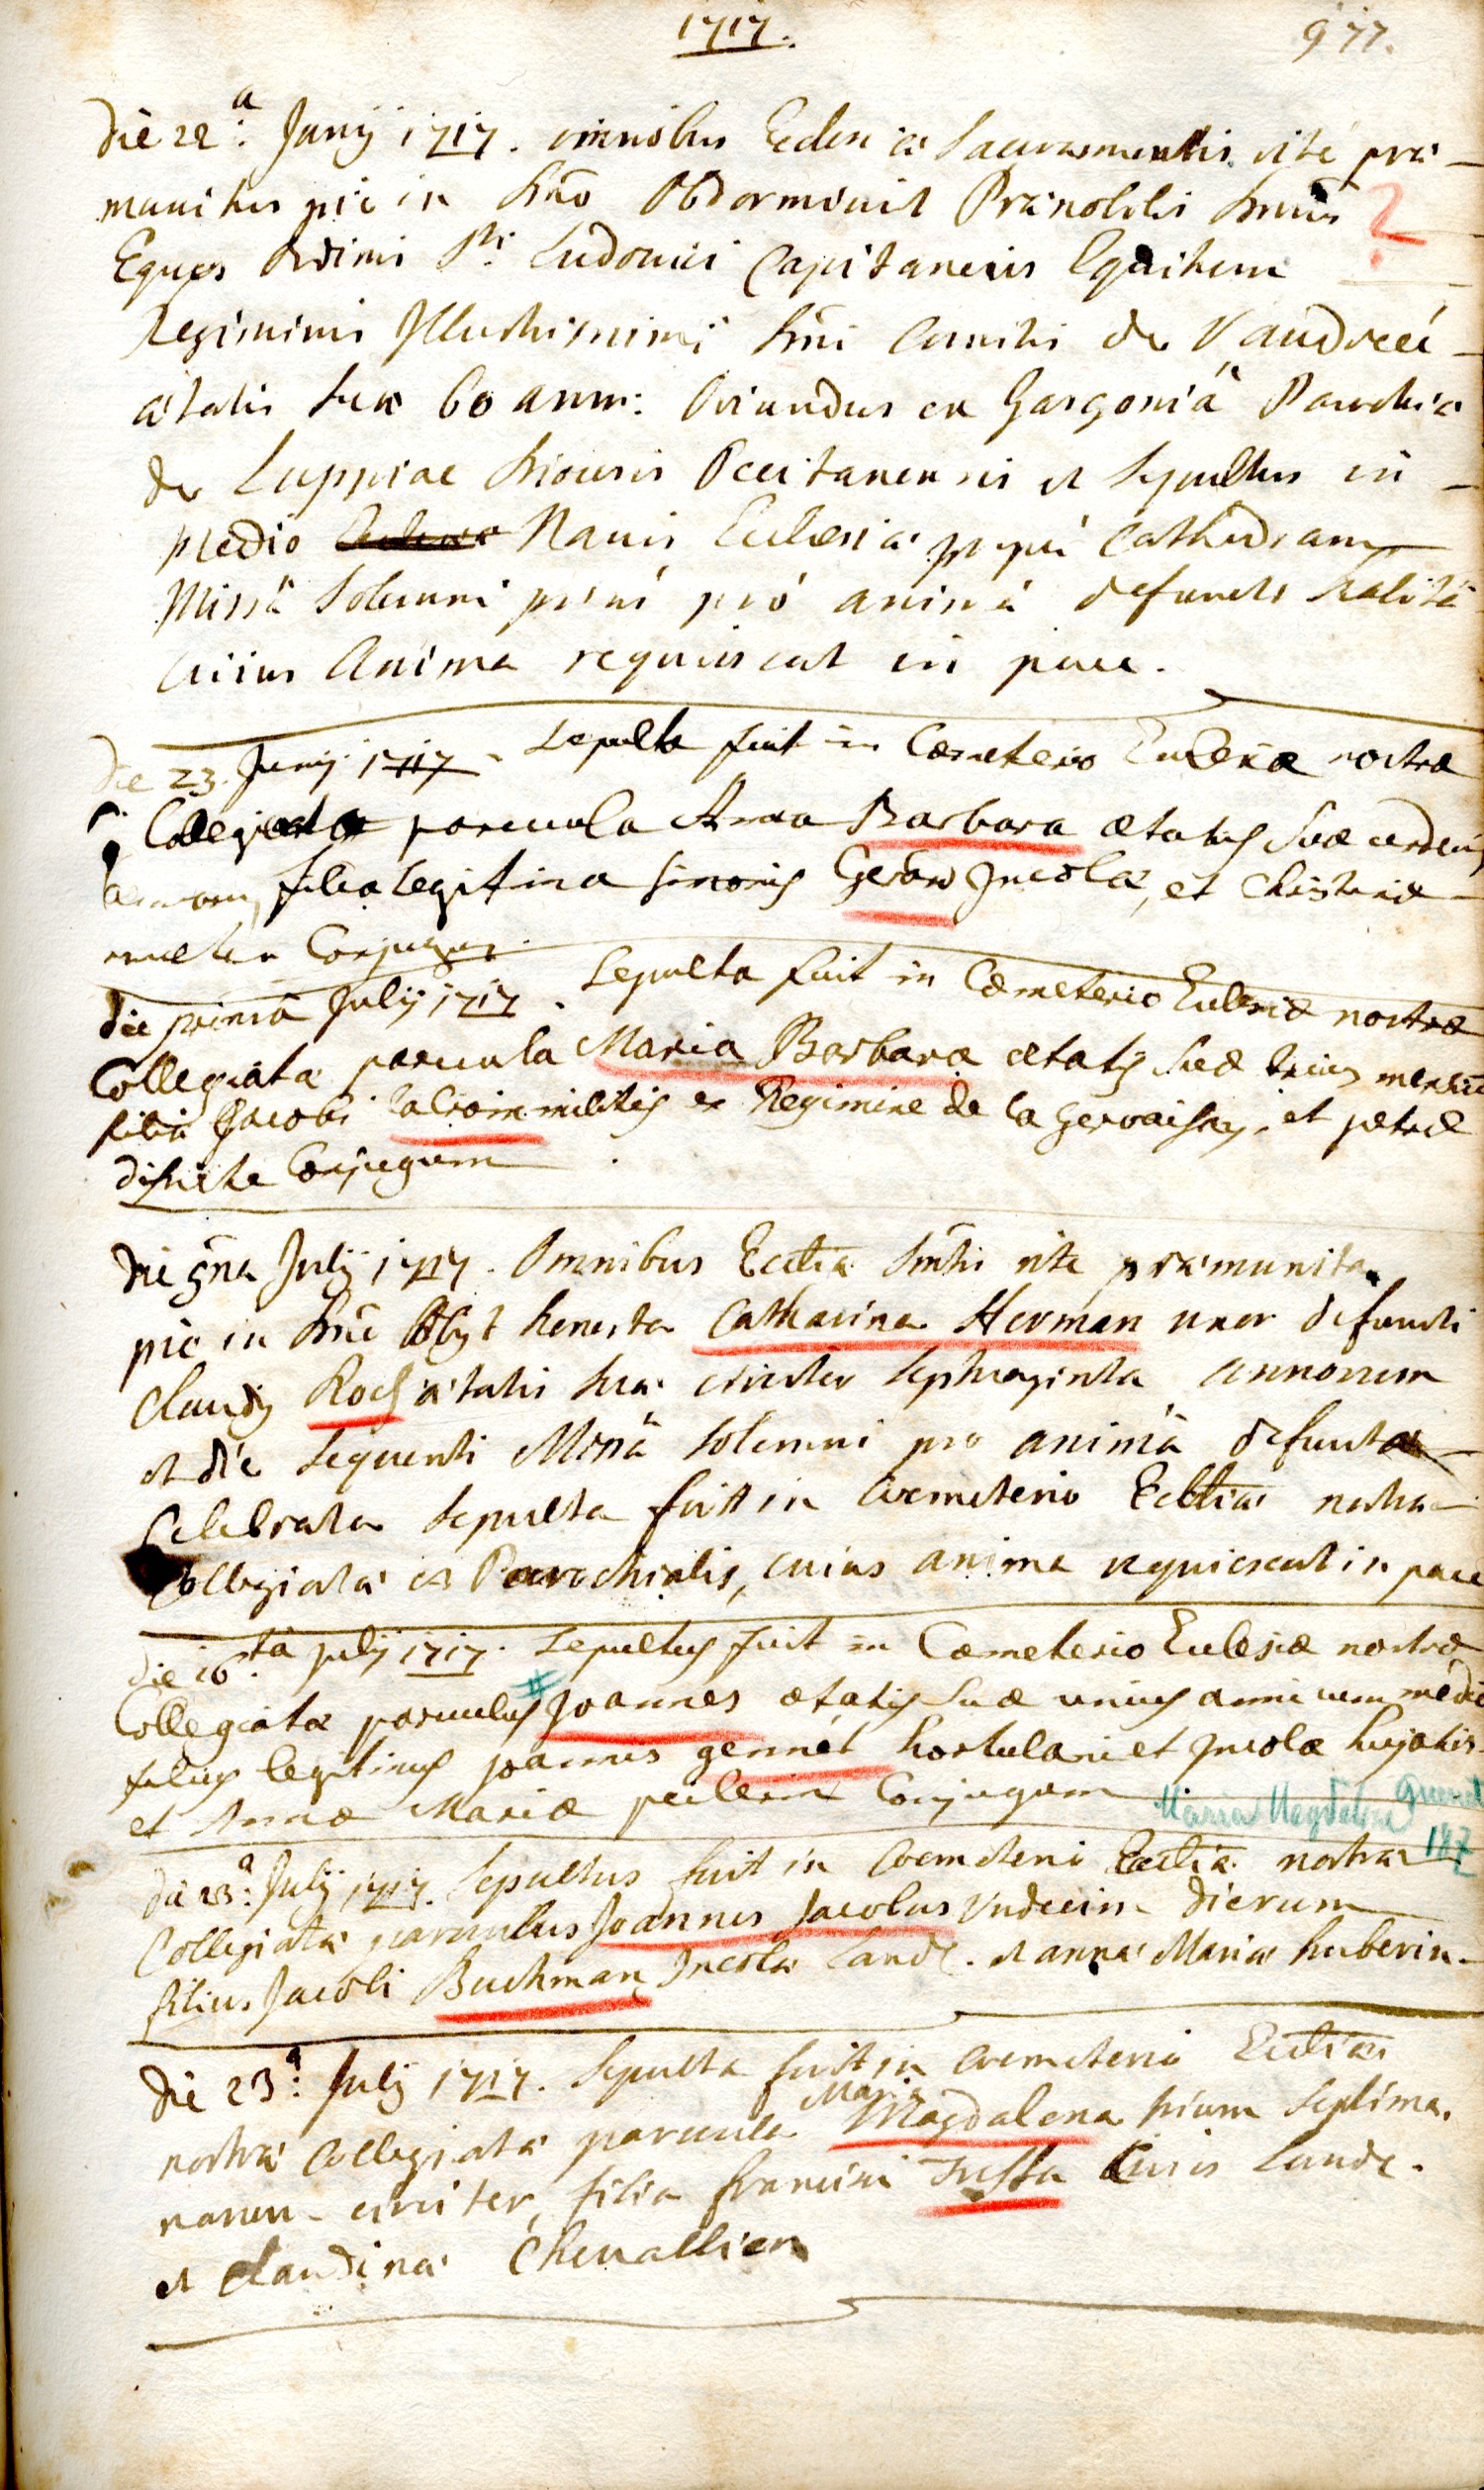 1717.
977.
die 22.a Junij 1717. omnibus Eccleѕiæ Sacramentis rite præ-
munitus pie in Dno Obdormivit Prænobilis Dnus
Eques Ordinis Sti Ludovici Capitaneus Equitum
Regiminis Illustrissimi Dni Comitis de Vaudreéi
ætatis suæ 60 ann: Oriundus ex Gasgoniâ Parochiæ
de Luppiac Occitanensis et Sepultus in
medio Navis Ecclesiæ propé Cathedram
Missâ Solemni priús pró animâ defuncti
Cuius Anima requiescat in pace.
die 23. Junij 1717. Sepulta fuit in Cœmeterio Ecclesiæ nostræ
Collegiatæ parvula Anna Barbara ætatis suæ
filia legitima Simonis Incolæ, et Christinæ
Conjugum.
die primâ Julij 1717. Sepulta fuit in Cœmeterio Ecclesiæ nostræ
Collegiatæ parvula Maria Barbara ætatis suæ trium mensium
filia Jacobi militis ex Regimine de la Gervaisay, et petræ
Conjugum.
die Julij 1717. Omnibus Ecctiæ Smtis rite præmunita
pie in Dno Obijt honesta Catharina Herman uxor defuncti
Claudij Roch ætatis suæ circiter Septuaginta annorum
et die Sequenti Missâ Solemni pro animâ defunctæ
Celebrata Sepulta fuit in Cœmeterio Ecctiæ nostræ
Collegiatæ et Parochialis, cuius anima requiescat in pace
die 16.ta julij 1717. Sepultus fuit in Cœmeterio Ecclesiæ nostræ
Collegiatæ parvulus # Joannes ætatis suæ unius anni cum medio
filius legitimus joannis gennét hortulani et Incolæ hujatis
et Annæ Mariæ Conjugum.
Maria Magdalena
die 23.a Julij 1717. Sepultus fuit in Cœmeterio Ecctiæ nostræ
Collegiatæ parvulus Joannes Jacobus Undecim dierum
filius Jacobi Buchman Incolæ Landt. et annæ Mariæ huberin.
Die 23.a Julij 1717. Sepulta fuit in Cœmeterio Ecctiæ
nostræ Collegiatæ parvula Maria Magdalena trium Septima.
narum circiter, filia Francisci Civis Landt.
et Claudinæ Chevallier